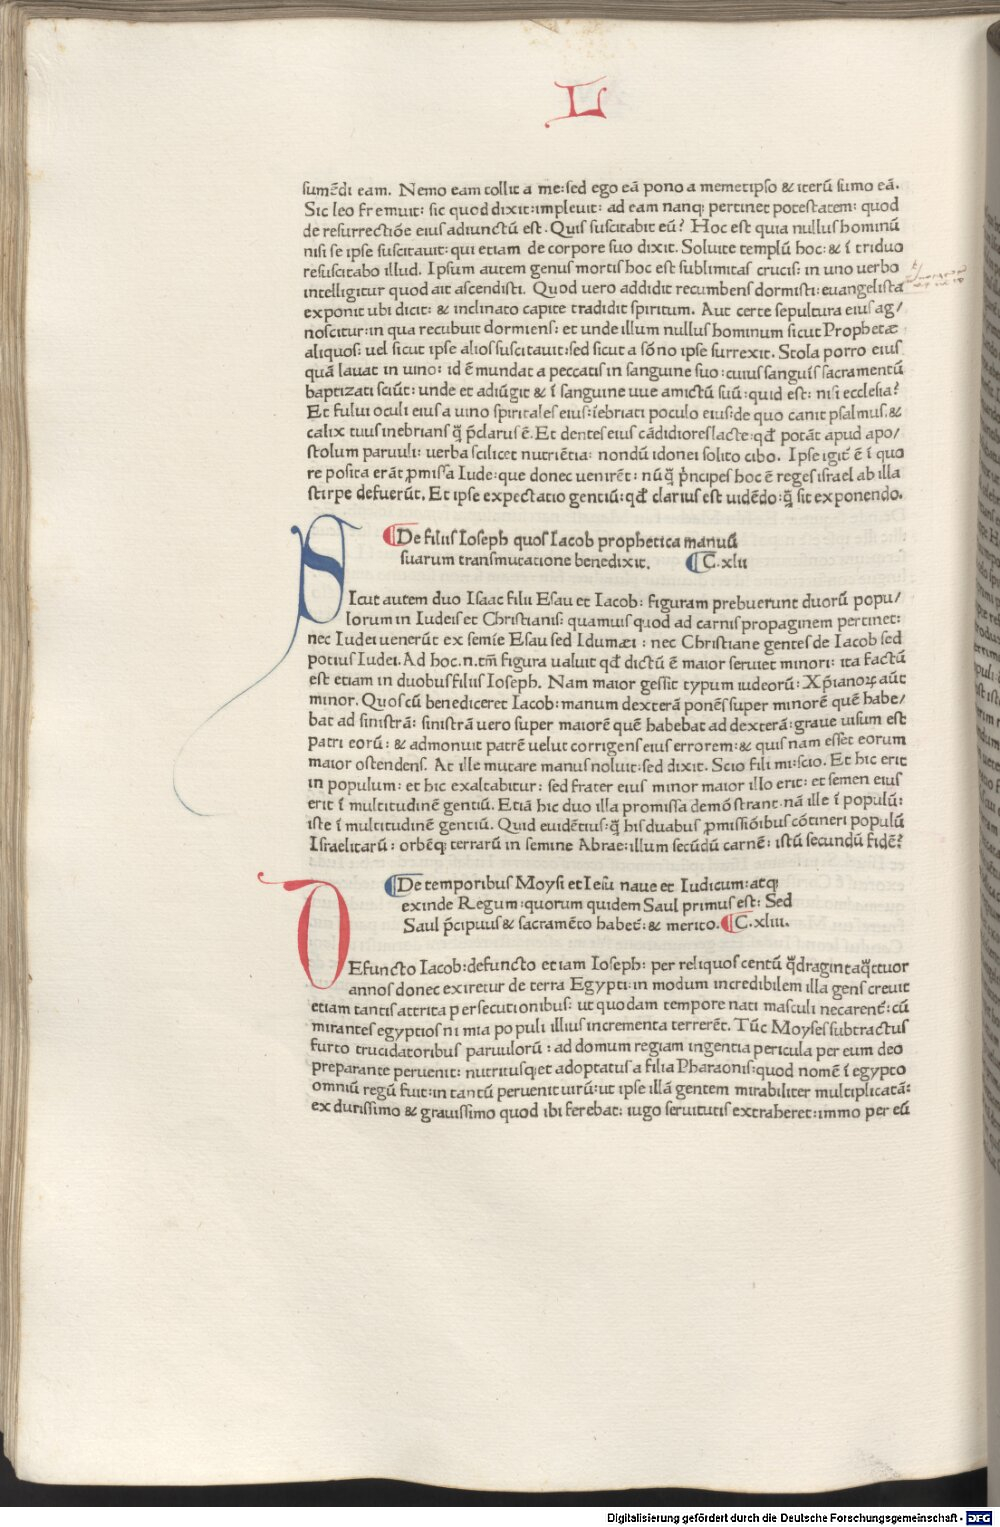 L
sumēdi eam. Nemo eam tollit a me:sed ego eā pono a memetipso & iterū sumo eā.
Sic leo fremuit: sic quod dixit:impleuit: ad eam nanq; pertinet potestatem: quod
de resurrectiōe eius adiunctū est. Quis suscitabit eū? Hoc est quia nullus hominū
nisi se ipse suscitauit: qui etiam de corpore suo dixit. Soluite templū hoc: & ī triduo
resuscitabo illud. Ipsum autem genus mortis hoc est sublimitas crucis: in uno uerbo
intelligitur quod ait ascendisti. Quod uero addidit recumbens dormisti: euangelista
exponit ubi dicit: & inclinato capite tradidit spiritum. Aut certe sepultura eius ag/
noscitur:in qua recubuit dormiens: et unde illum nullus hominum sicut Prophetæ
aliquos: uel sicut ipse alios suscitauit:sed sicut a sōno ipse surrexit. Stola porro eius
quā lauat in uino: id ē mundat a peccatis in sanguine suo: cuius sanguīs sacramentū
baptizati sciūt: unde et adiūgit & ī sanguine uue amictū suū: quid est: nisi ecclesia?
Et fului oculi eius a uino spiritales eius: īebriati poculo eius:de quo canit psalmus,&
calix tuus inebrians q̄ p̄clarus ē. Et dentes eius cādidiores lacte: qđ potāt apud apo/
stolum paruuli: uerba scilicet nutriētia: nondū idonei solito cibo. Ipse igit̄ ē ī quo
re posita erāt ꝓmissa Iude: que donec uenirēt: nūq̄ p̄ncipes hoc ē reges israel ab illa
stirpe defuerūt. Et ipse expectatio gentiū: qđ clarius est uidēdo: q̄ sit exponendo.
¶De filiis Ioseph quos Iacob prophetica manuū
suarum transmutatione benedixit. ¶C.xlii
SIcut autem duo Isaac filii Esau et Iacob: figuram prebuerunt duorū popu/
lorum in Iudeis et Christianis: quamuis quod ad carnis propaginem pertinet:
nec Iudei uenerūt ex semīe Esau sed Idumæi : nec Christiane gentes de Iacob sed
potius Iudei. Ad hoc.n.tm̄ figura ualuit qđ dictū ē maior seruiet minori: ita factū
est etiam in duobus filiis Ioseph. Nam maior gessit typum iudeorū: Xp̄ianoꝝ aūt
minor. Quos cū benediceret Iacob: manum dexterā ponēs super minorē quē habe/
bat ad sinistrā: sinistrā uero super maiorē quē habebat ad dexterā: graue uisum est
patri eorū: & admonuit patrē uelut corrigens eius errorem: & quis nam esset eorum
maior ostendens. At ille mutare manus noluit:sed dixit. Scio fili mi:scio. Et hic erit
in populum: et hic exaltabitur: sed frater eius minor maior illo erit: et semen eius
erit ī multitudinē gentiū. Etiā hic duo illa promissa demōstrant. nā ille ī populū:
iste ī multitudinē gentiū. Quid euidētius: q̄ his duabus ꝓmissiōibus cōtineri populū
Israelitarū: orbēq; terrarū in semine Abrae: illum secūdū carnē: istū secundū fidē?
¶De temporibus Moysi et Iesu naue et Iudicum: atq;
exinde Regum: quorum quidem Saul primus est: Sed
Saul p̄cipuus & sacramēto habet̄: & merito. ¶C.xliii.
DEfuncto Iacob: defuncto etiam Ioseph: per reliquos centū q̄dragintaq̄ttuor
annos donec exiretur de terra Egypti: in modum incredibilem illa gens creuit
etiam tantis attrita persecutionibus: ut quodam tempore nati masculi necarent̄: cū
mirantes egyptios nimia populi illius incrementa terrerēt. Tūc Moyses subtractus
furto trucidatoribus paruulorū : ad domum regiam ingentia pericula per eum deo
preparante peruenit: nutritusq; et adoptatus a filia Pharaonis: quod nomē ī egypto
omniū regū fuit: in tantū peruenit uirū: ut ipse illā gentem mirabiliter multiplicatā:
ex durissimo & grauissimo quod ibi ferebat: iugo seruitutis extraheret: immo per eū
Digitalisierung gefördert durch die Deutsche Forschungsgemeinschaft - DFG